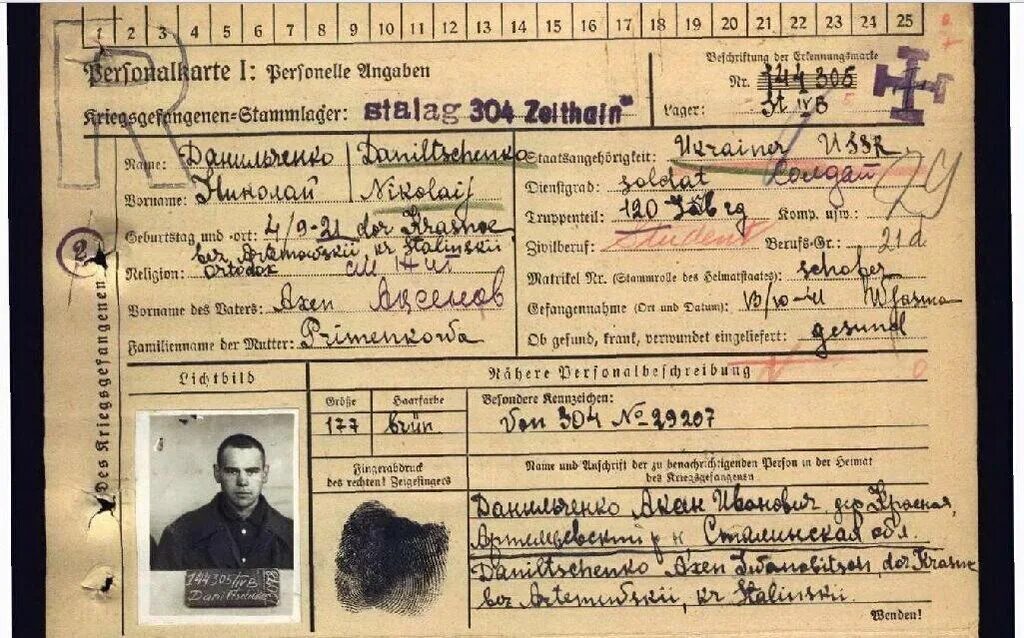 1 2 3 4 5 6 7 8 9 10 11 12 13 14 15 16 17 18 19 20 21 22 23 24 25
Personalkarte I: Personelle Angaben
Beschriftung der Erkennungsmarke
Nr. 144 305
Kriegsgefangenen-Stammlager: Stalag 304 Zeithain
Lager: St IVB
Des Kriegsgefangenen
2
Name: Данильченко Daniltschenko
Vorname: Николай Nikolaij
Geburtstag und -ort: 4/9-21 dor Krasnoe
bez Artemowskii, kr Stalinskii
Religion: Ortodox
Vorname des Vaters: Axen
Familienname der Mutter: Primenkowa
Staatsangehörigkeit: Ukrainer USSR
Dienstgrad: Soldat Солдат
Truppenteil: 120 Komp. usw.:
Zivilberuf: Student Berufs-Gr.: 21 d
Matrikel Nr. (Stammrolle des Heimatstaates): schofer
Gefangennahme (Ort und Datum): 13/10-41 Wjasma
Ob gesund, krank, verwundet eingeliefert: gesund
Lichtbild
144305/IVB
Daniltschenko
Nähere Personalbeschreibung
Größe Haarfarbe Besondere Kennzeichen:
177 brün Von 304 № 29207
Fingerabdruck
des rechten! Zeigefingers
Name und Anschrift der zu benachrichtigenden Person in der Heimat
des Kriegsgefangenen
Данильченко Иванович дер Красная,
Артемовский р-н, Сталинская обл.
Daniltschenko Axen Iwanobitsch, dor Krasnoe
bez Artemowskii, kr Stalinskii.
Wenden!